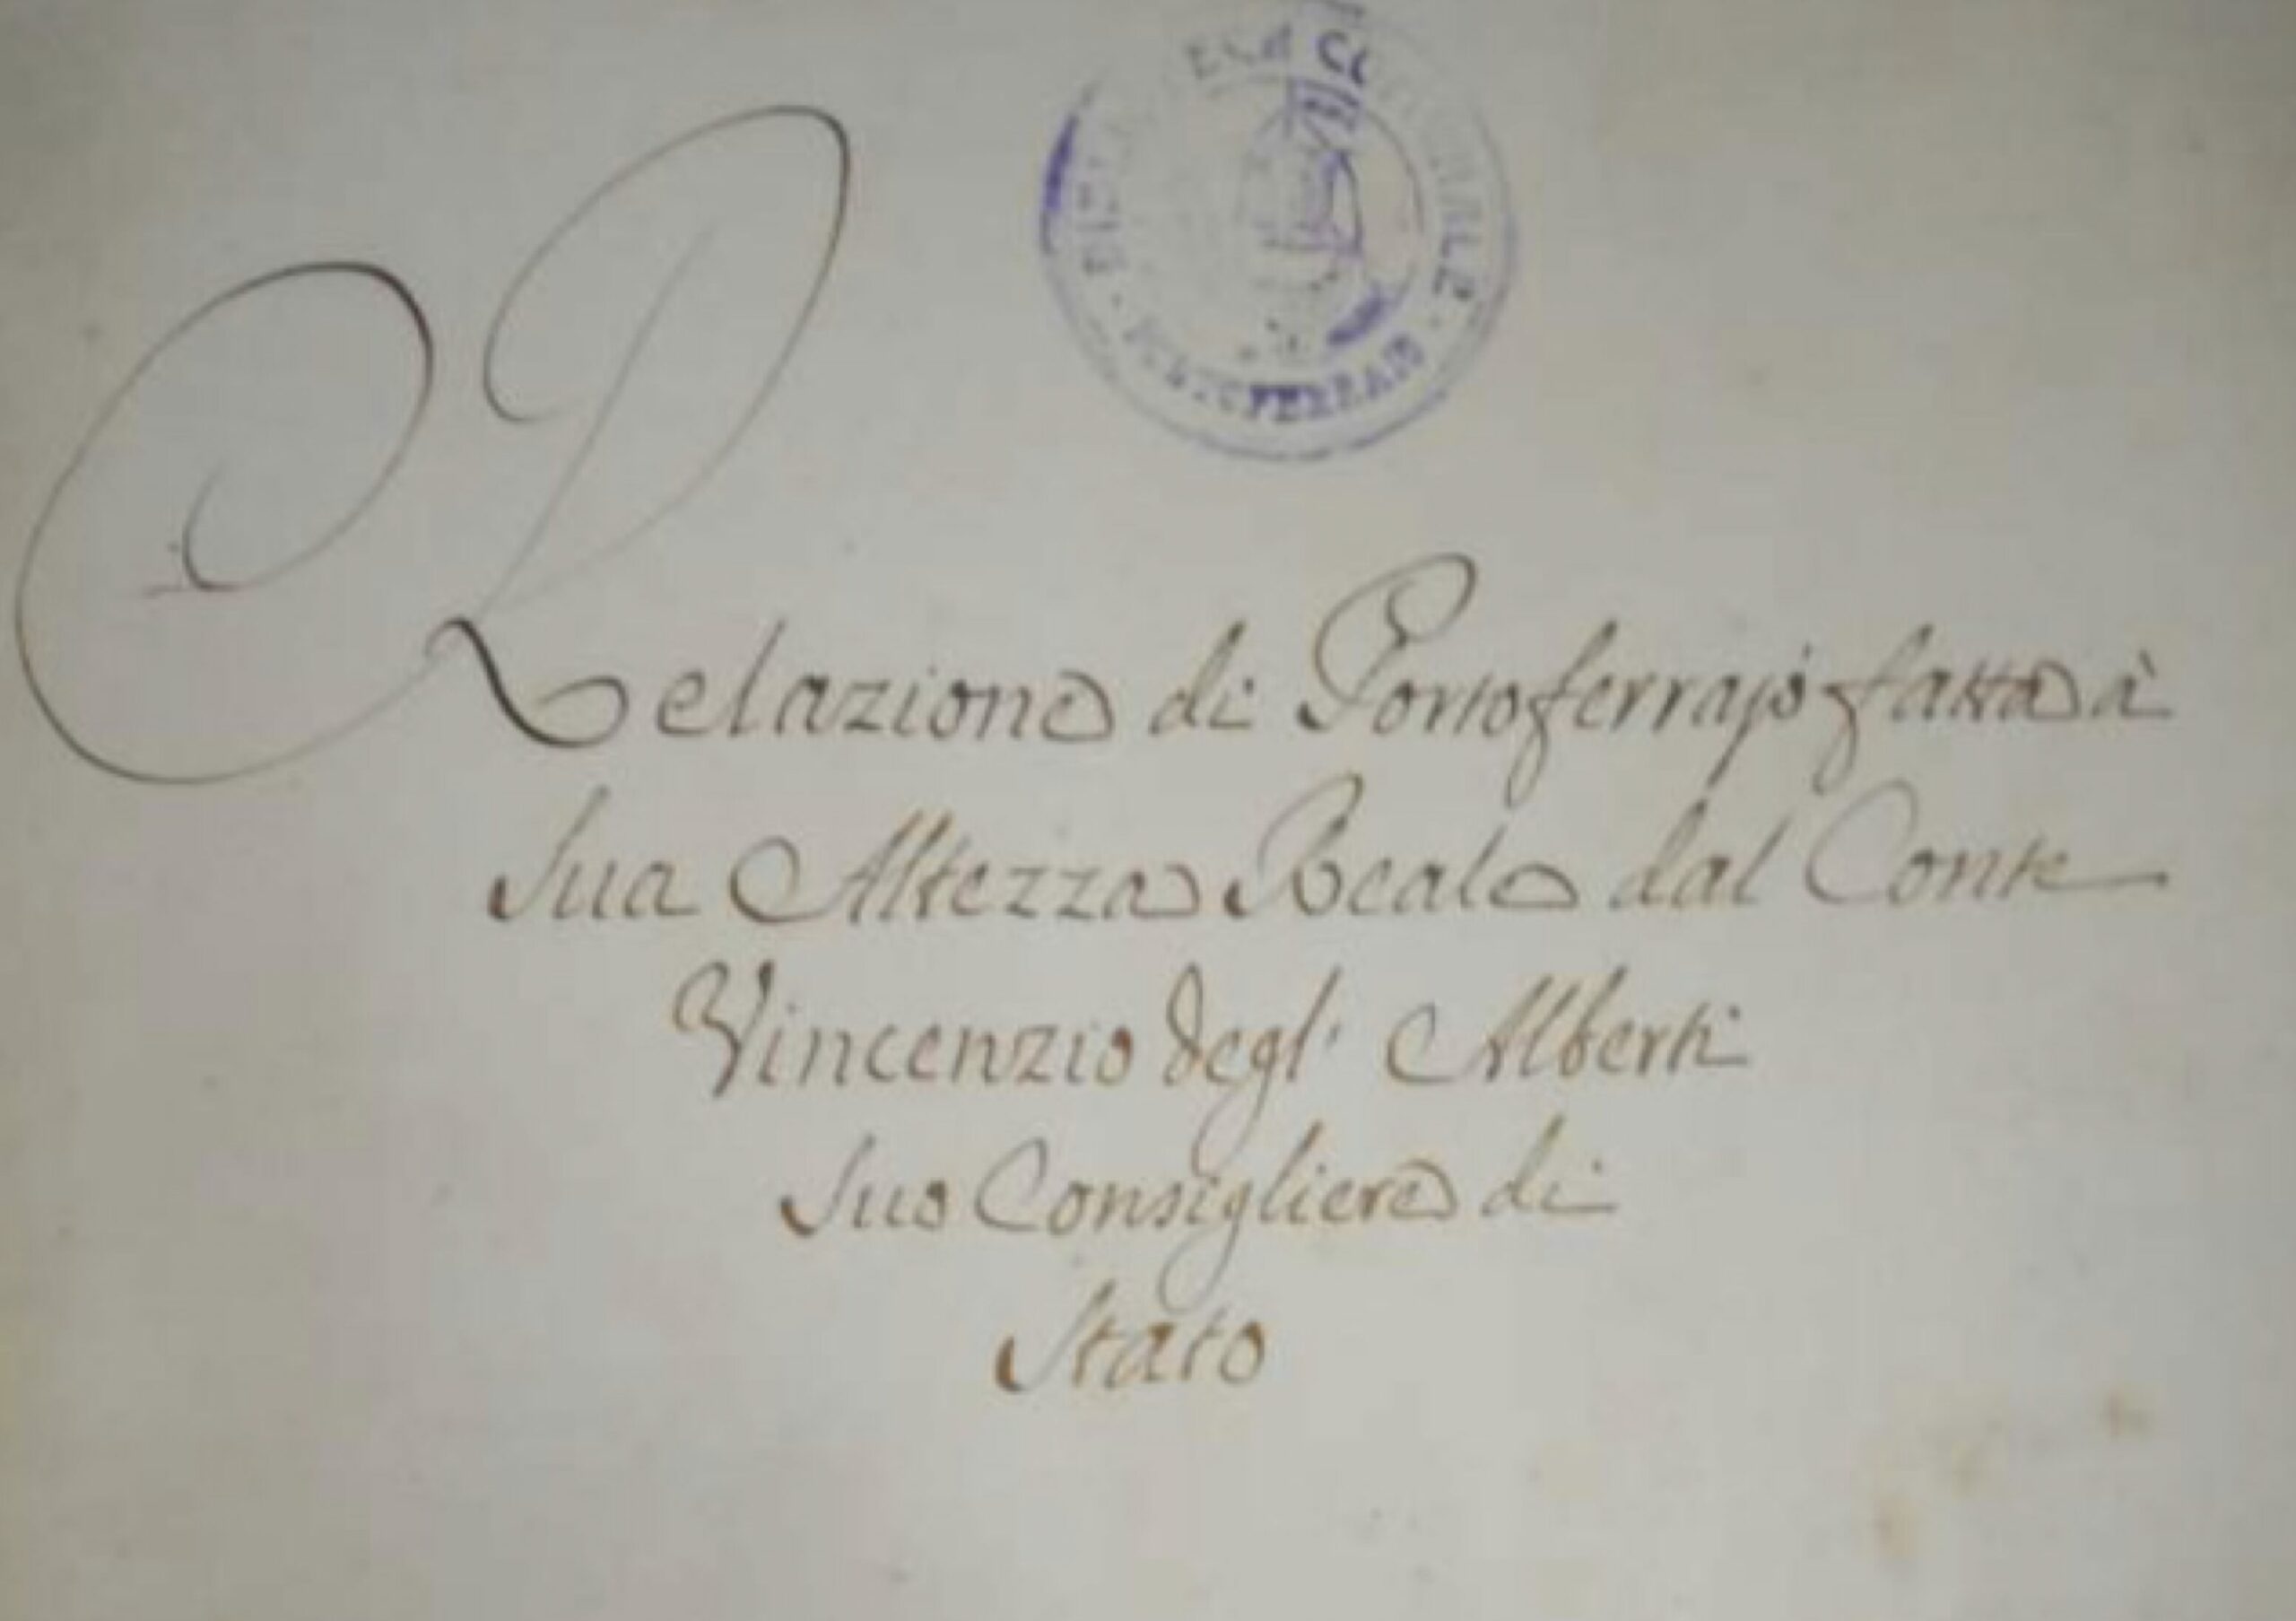 BIBLIOTECA COMUNALE
· PORTOFERRAIO ·
Relazione di Portoferrajo fatta à
Sua Altezza Reale dal Conte
Vincenzio degl' Alberti
Suo Consigliere di
Stato